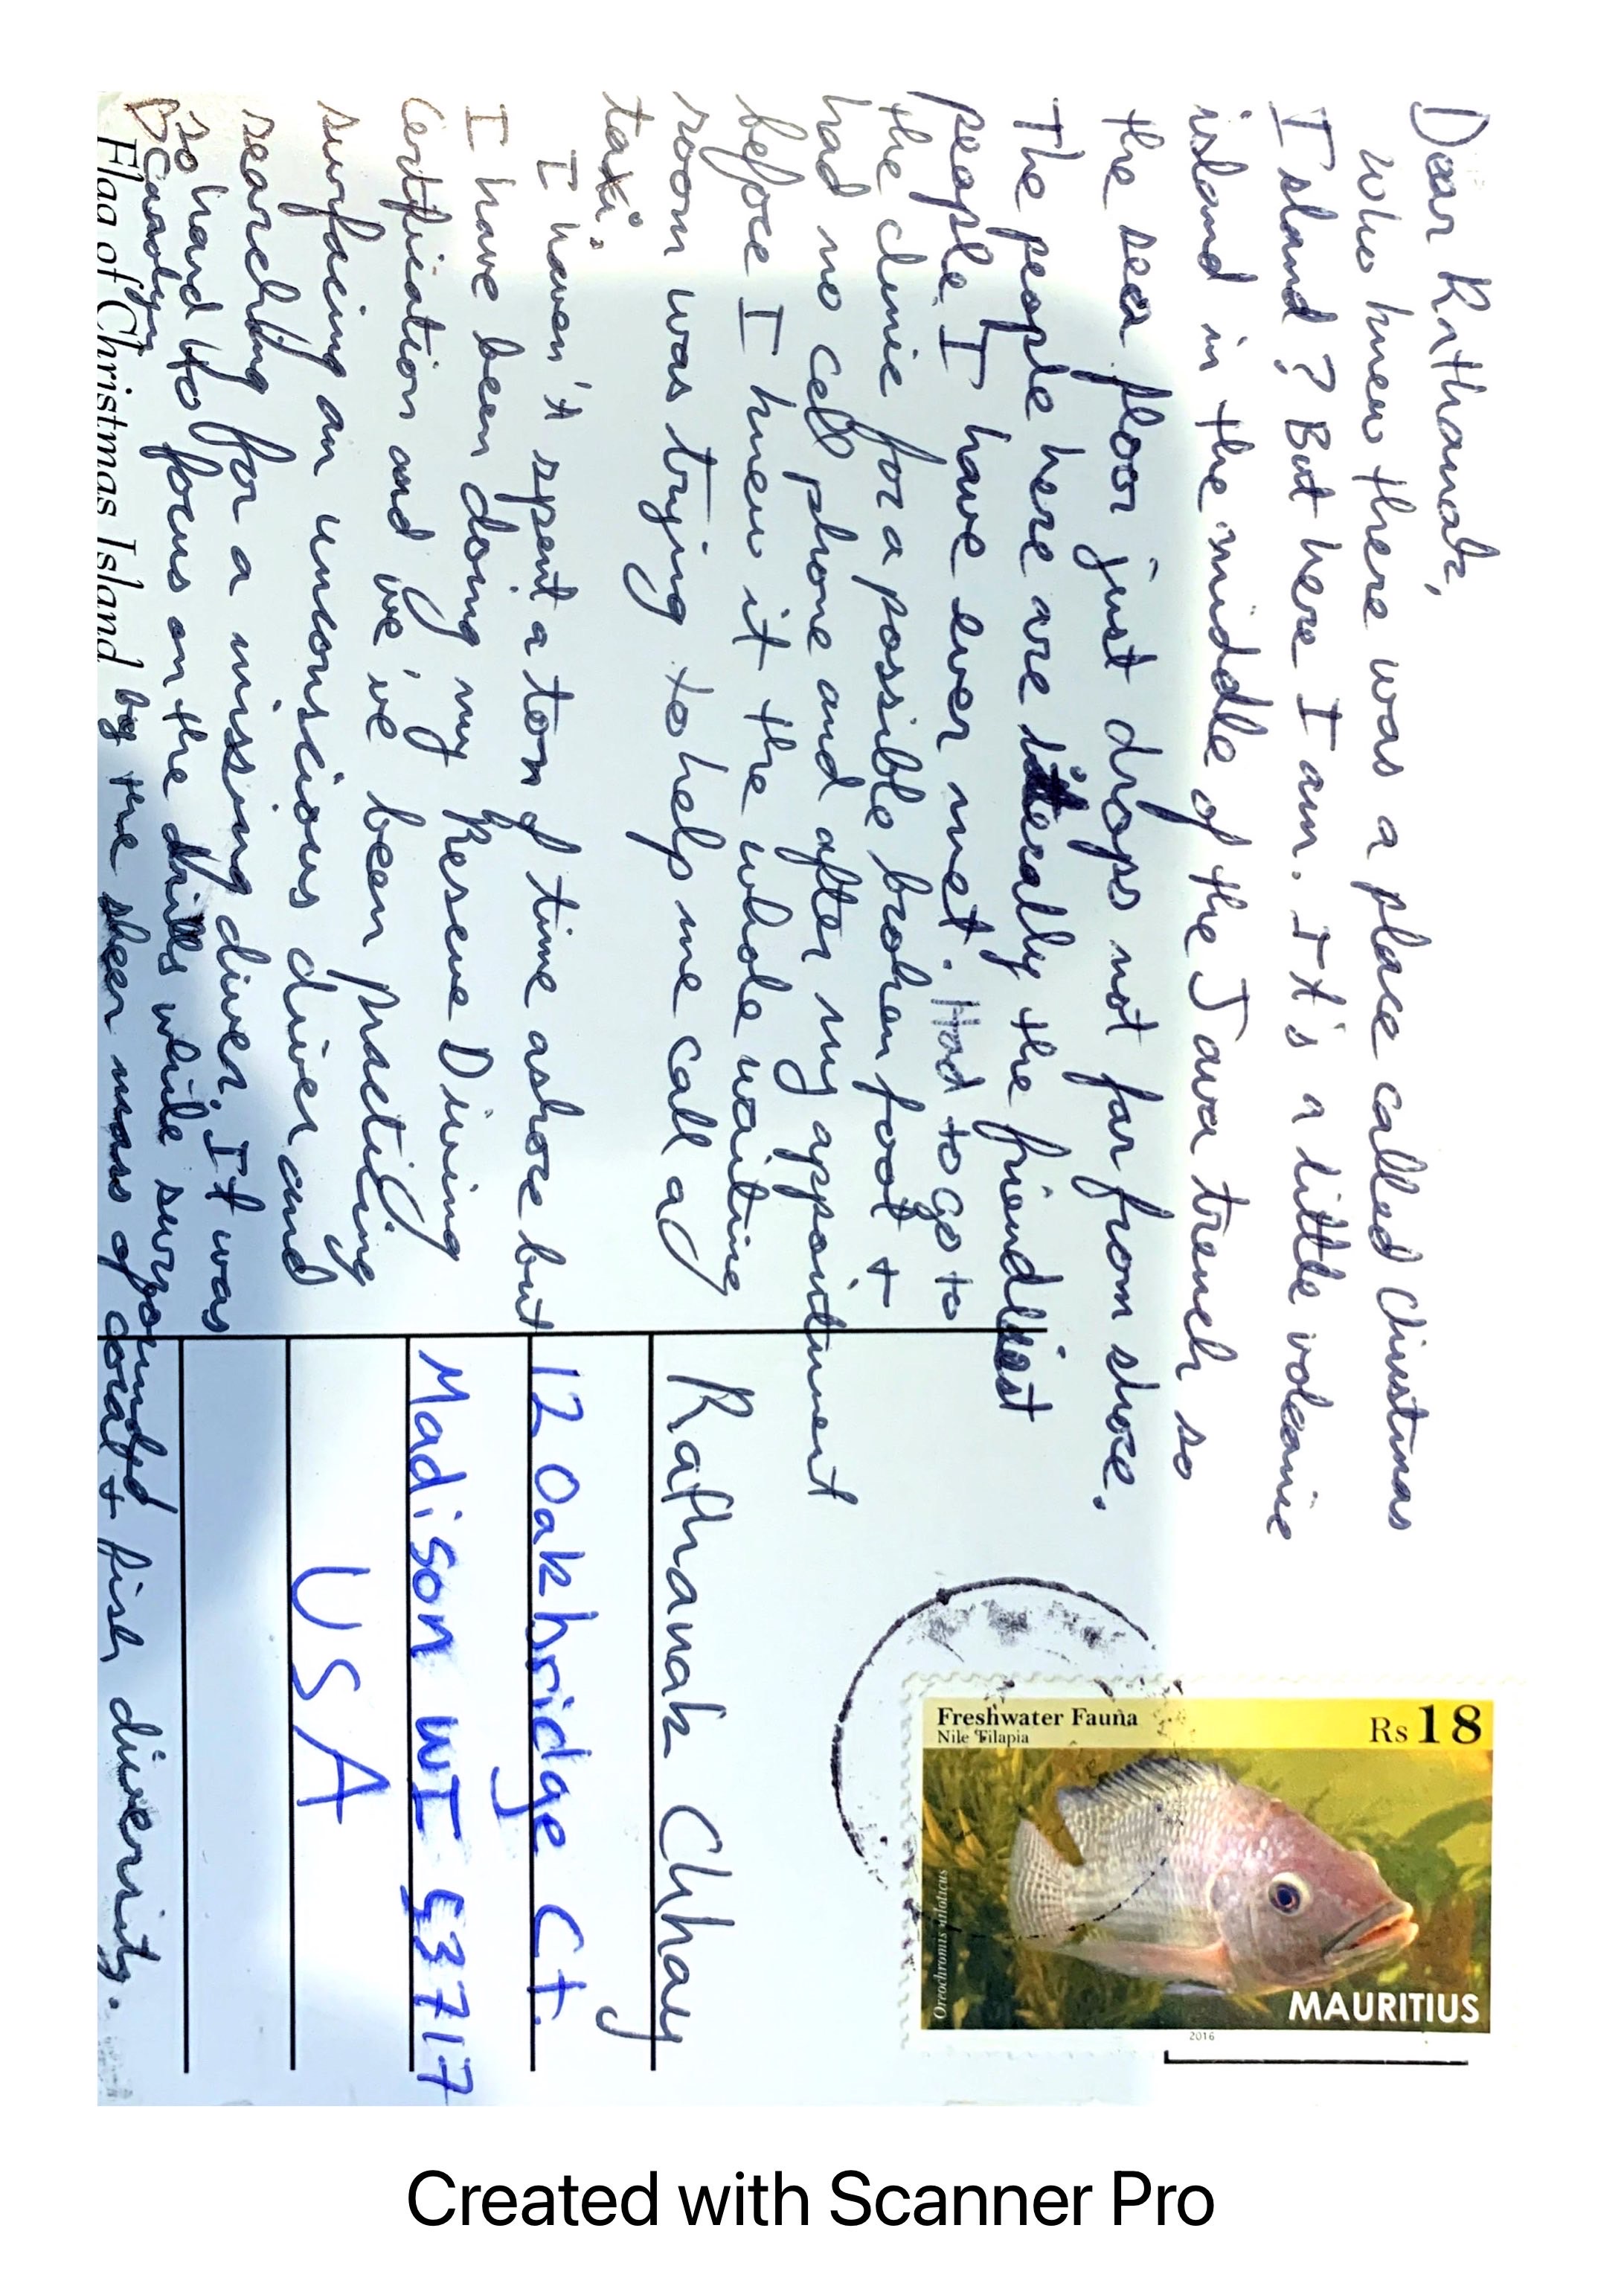 Dear Rathanak,
Who knew there was a place called Christmas
Island? But here I am. It's a little volcanic
island in the middle of the Java trench so
the sea floor just drops not far from shore.
The people here are literally the friendliest
people I have ever met. Had to go to
the clinic for a possible broken foot +
had no cell phone and after my appointment
before I knew it the whole waiting
room was trying to help me call a
taxi.
I haven't spent a ton of time ashore but
I have been doing my Rescue Diving
Certification and we've been practicing
surfacing an unconscious diver and
searching for a missing diver. It was
so hard to focus on the drills while surrounded
by the sheer mass of coral + fish diversity.
Carolyn
Flag of Christmas Island
Rathanak Chhay
12 Oakbridge Ct.
Madison WI 53717
USA
Freshwater Fauna
Nile Tilapia
Rs 18
Oreochromis niloticus
MAURITIUS
2016
Created with Scanner Pro